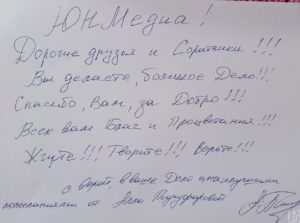 ЮНМедиа!
Дорогие друзья и Соратники!!!
Вы делаете, большое Дело!!!
Спасибо, Вам, за Добро!!!
Всех вам Благ и Процветания!!!
Жгите!!! Творите!!! Верьте!!!
с верой, в ваше Дело и наилучшими
пожеланиями от